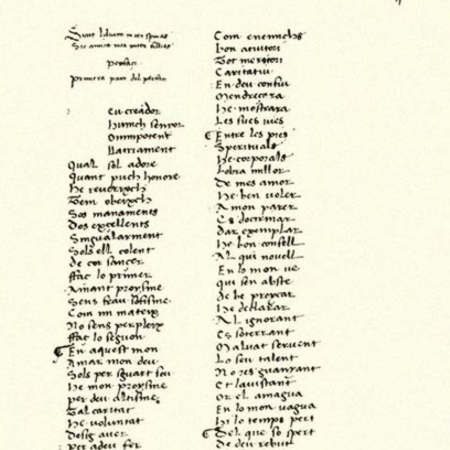 Sicut lilium inter spinas
Sic amica mea inter filias
Perfaçi
Primera part del perfaci
eu creador
hu​mch senyor
Omnipotent
Qual sol adore
Quant puch honore
he reverexch
Tem obexch
Sos manaments
Dos excellents
Singularment
Sols ell colent
de cor sancer
ffaç lo primer
Amant proysme
Sens frau
Com mi mateix
No sens perpleix
ffaç lo segon
En aquest mon
Amar mon deu
Sols per sguart seu
he mon proysme
per deu altisme
Tal caritat
he voluntat
Desig aver
per adeu fer
Com enemichs
bon
Tot meritori
Caritatiu
En deu
Mendreçara
He mostrara
Les sues vies
Entre les pies
Sperituals
He corporals
lobra millor
De mes amor
he ben voler
A mon parer
Es doctrinar
Dar exemplar
he bon consell
Al qui novell
En lo mon ve
qui sen abste
de be preycar
he declarar
Al ignorant
es soterrant
Malvat servent
Lo seu talent
No res guanyant
Or el amagua
En lo mon vagua
hi lo temps pert
Del que so spert
de deu rebut